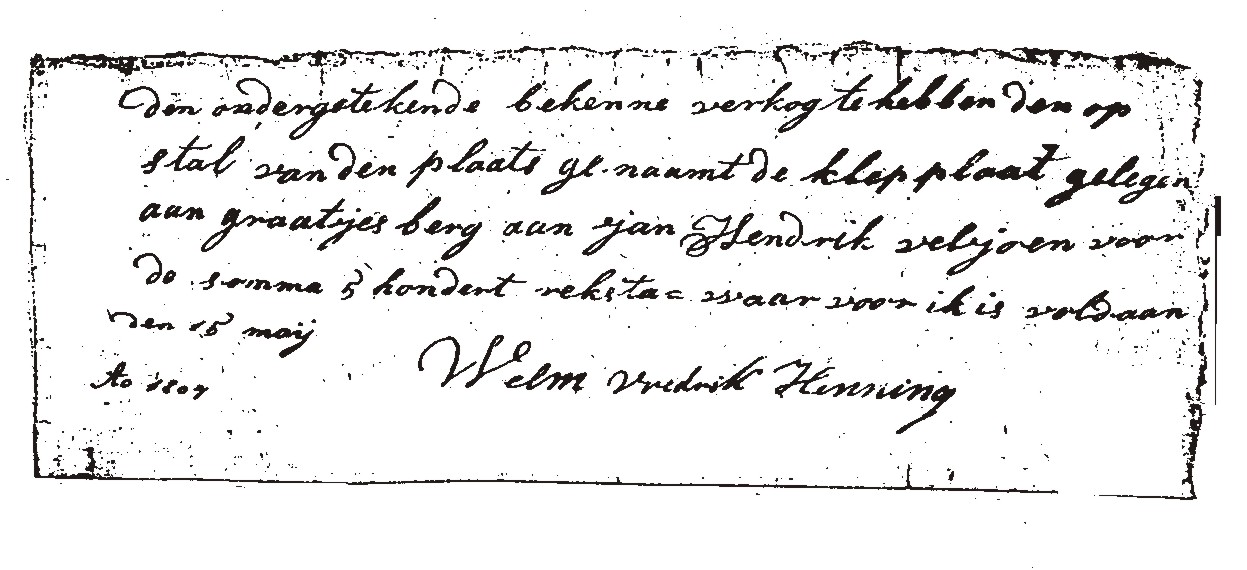 den ondergetekende bekenne verkog te hebben den op
stal van den plaats ge naamt de klep plaat gelegen
aan graatjes berg aan Jan Hendrik velvjoen voor
de somma 5 hondert reksta= waar voor ik is voldaan
den 15 maij
Ao 1807
Welm Vredrik Henning